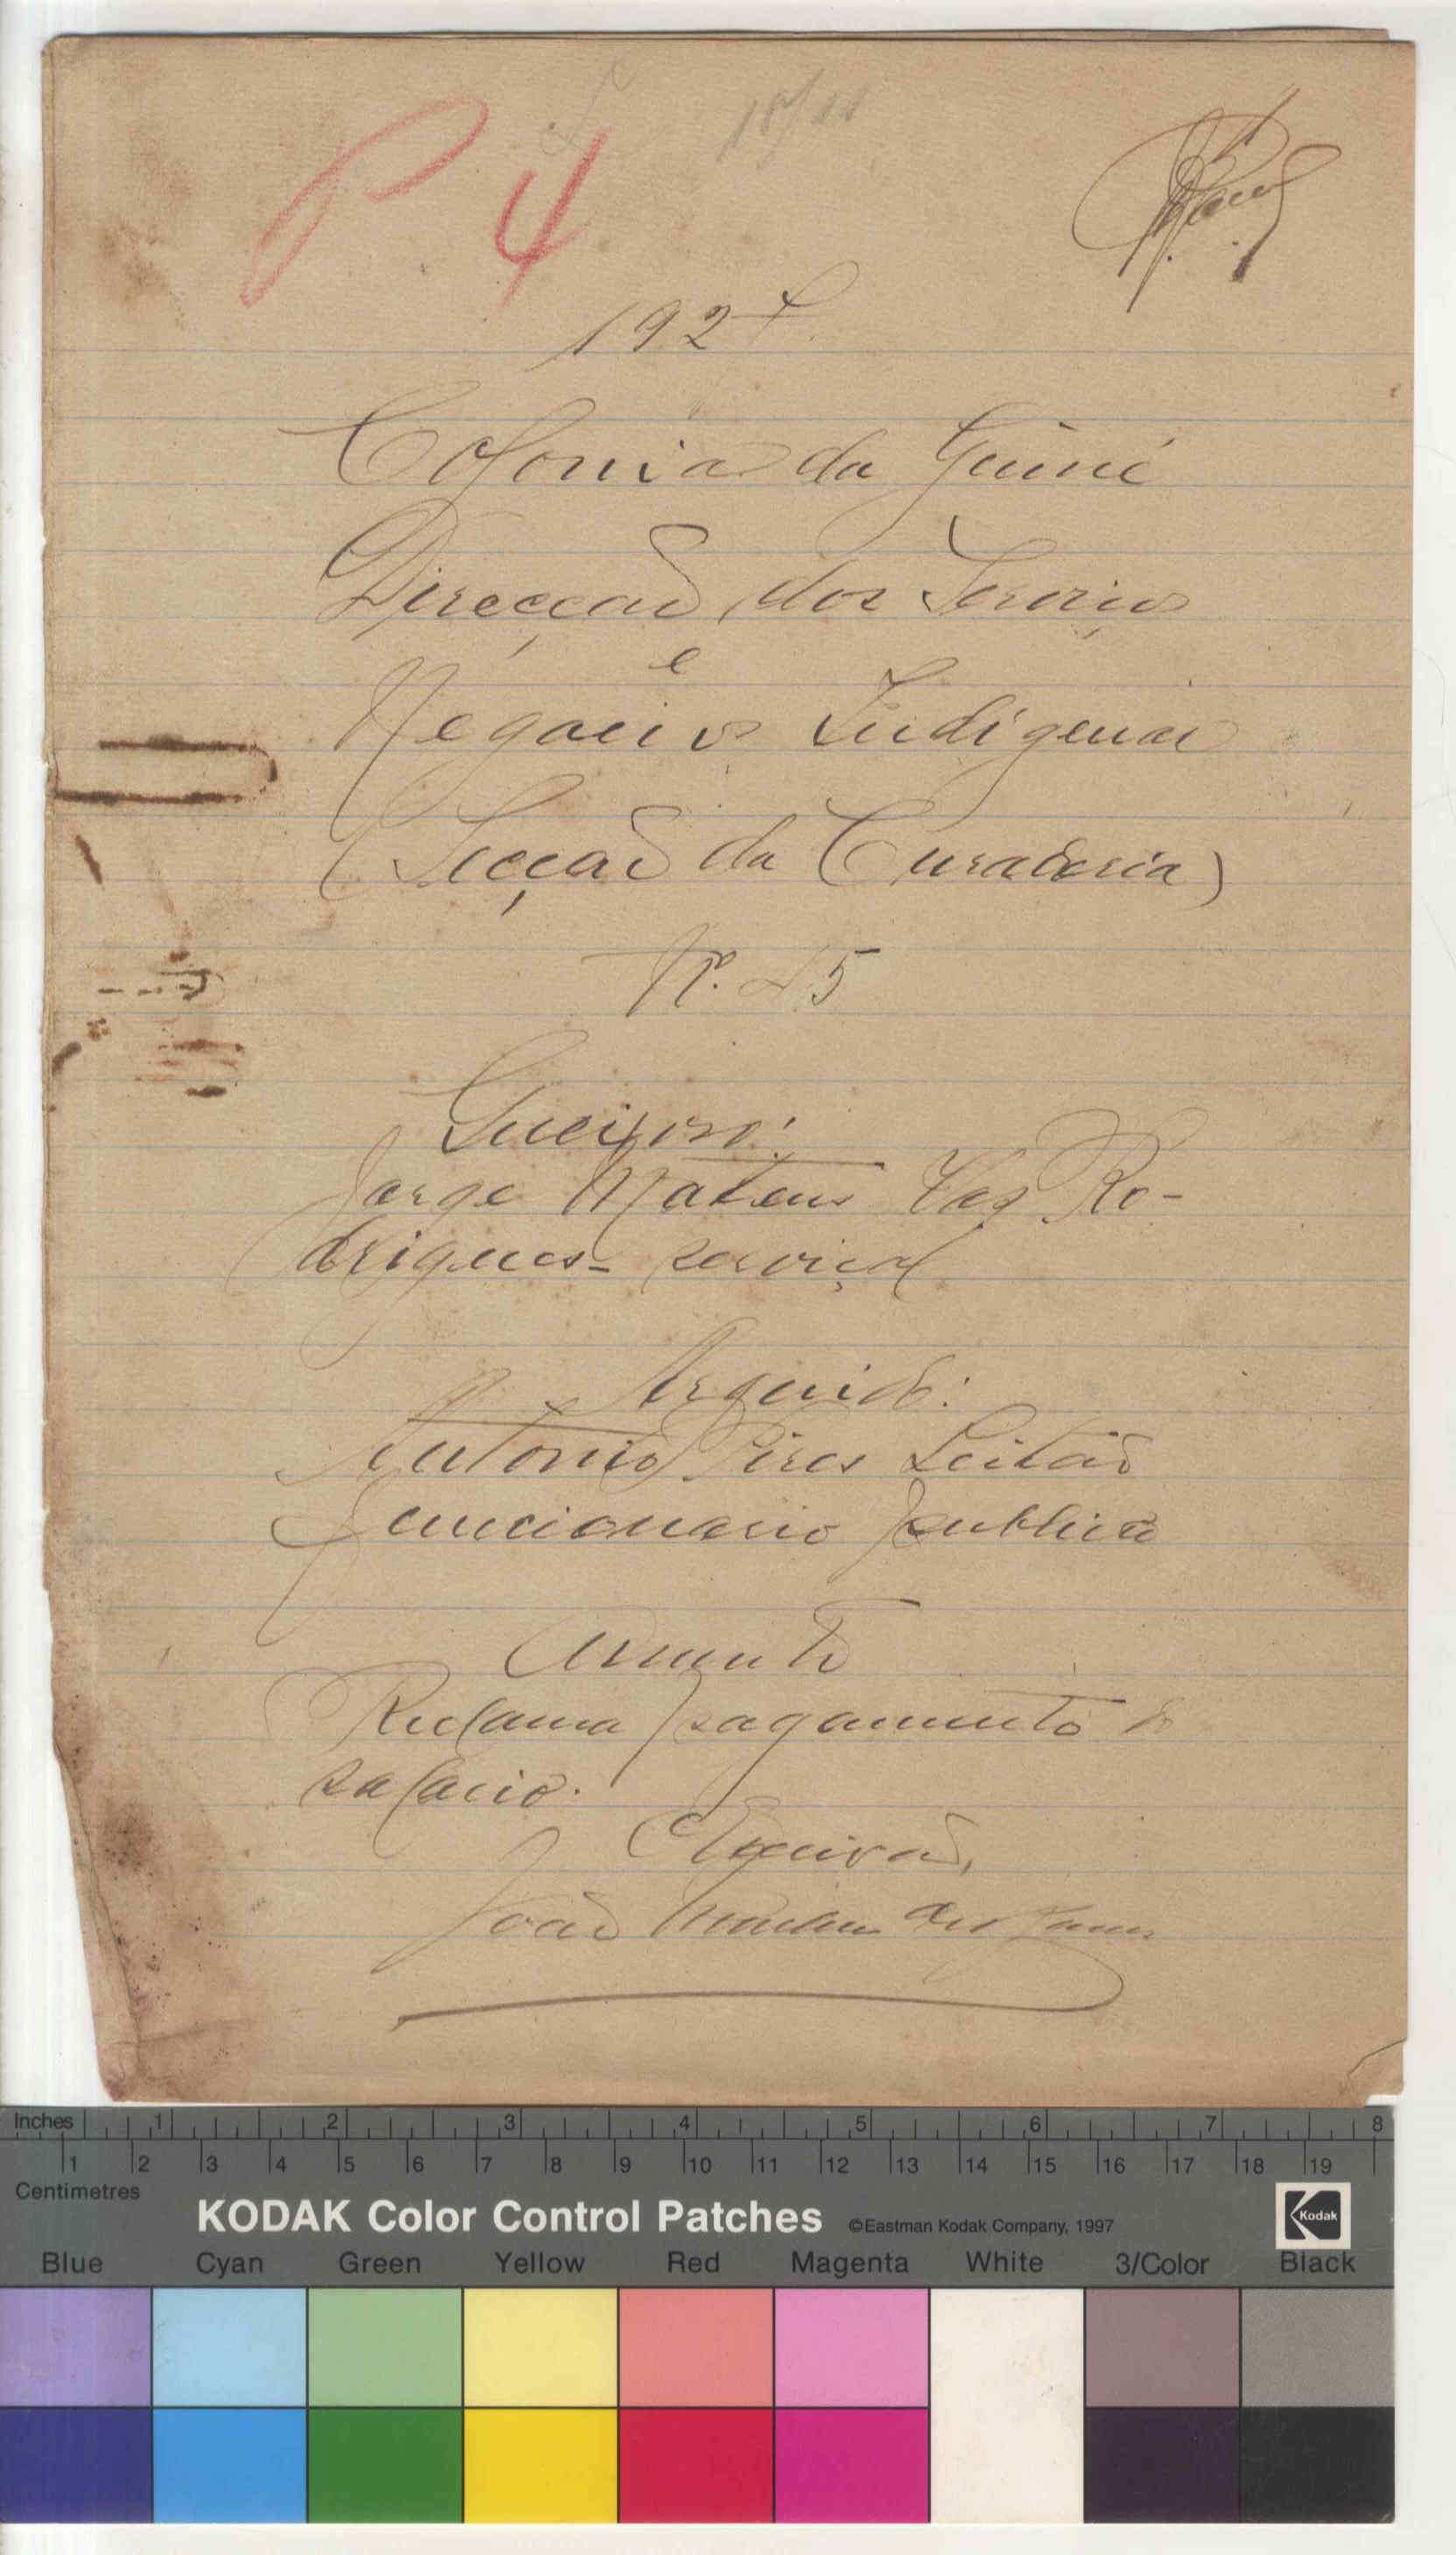 P. 4
18/11
1927.
Colonia da Guiné
Direcção dos Serviços
e
Negocios Indigenas
(Secção da Curadoria)
Nº. 45
Queixoso:
Jorge Mateus Vaz Ro-
drigues - serviçal
Arguido:
Antonio Pires Leitão
funcionario publico
Assunto
Reclama pagamento de
salario.
O Escrivão,
João
Inches 1 2 3 4 5 6 7 8
1 2 3 4 5 6 7 8 9 10 11 12 13 14 15 16 17 18 19
Centimetres
KODAK Color Control Patches ©Eastman Kodak Company, 1997 Kodak
Blue Cyan Green Yellow Red Magenta White 3/Color Black